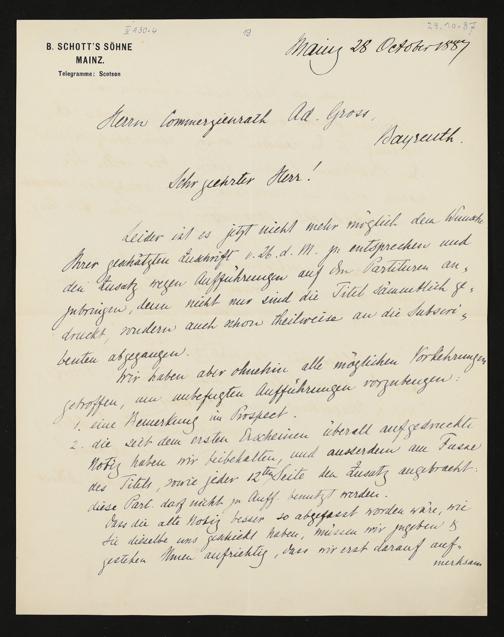 B. SCHOTT'S SÖHNE
MAINZ.
Telegramme: Scotson
Mainz 28 October 1887
Herrn Commerzienrath Ad. Gross,
Bayreuth.
Sehr geehrter Herr!
Leider ist es jetzt nicht mehr möglich dem Wunsche
Ihrer geschätzten Zuschrift v. 26. d. M. zu entsprechen und
den Zusatz wegen Aufführungen auf den Partituren an-
zubringen, denn nicht nur sind die Titel sämmtlich ge-
druckt, sondern auch schon theilweise an die Subscri-
benten abgegangen.
Wir haben aber ohnehin alle möglichen Vorkehrungen
getroffen, um unbefugten Aufführungen vorzubeugen:
1. eine Bemerkung im Prospect.
2. die seit dem ersten Erscheinen überall aufgedruckte
Notiz haben wir beibehalten, und ausserdem am Fusse
des Titels, sowie jeder 12ten Seite den Zusatz angebracht:
diese Part. darf nicht zu Auff benutzt werden.
Dass die alte Notiz besser so abgefasst worden wäre, wie
Sie dieselbe uns geschickt haben, müssen wir zugeben &
gestehen Ihnen aufrichtig, dass wir erst darauf auf-
merksam